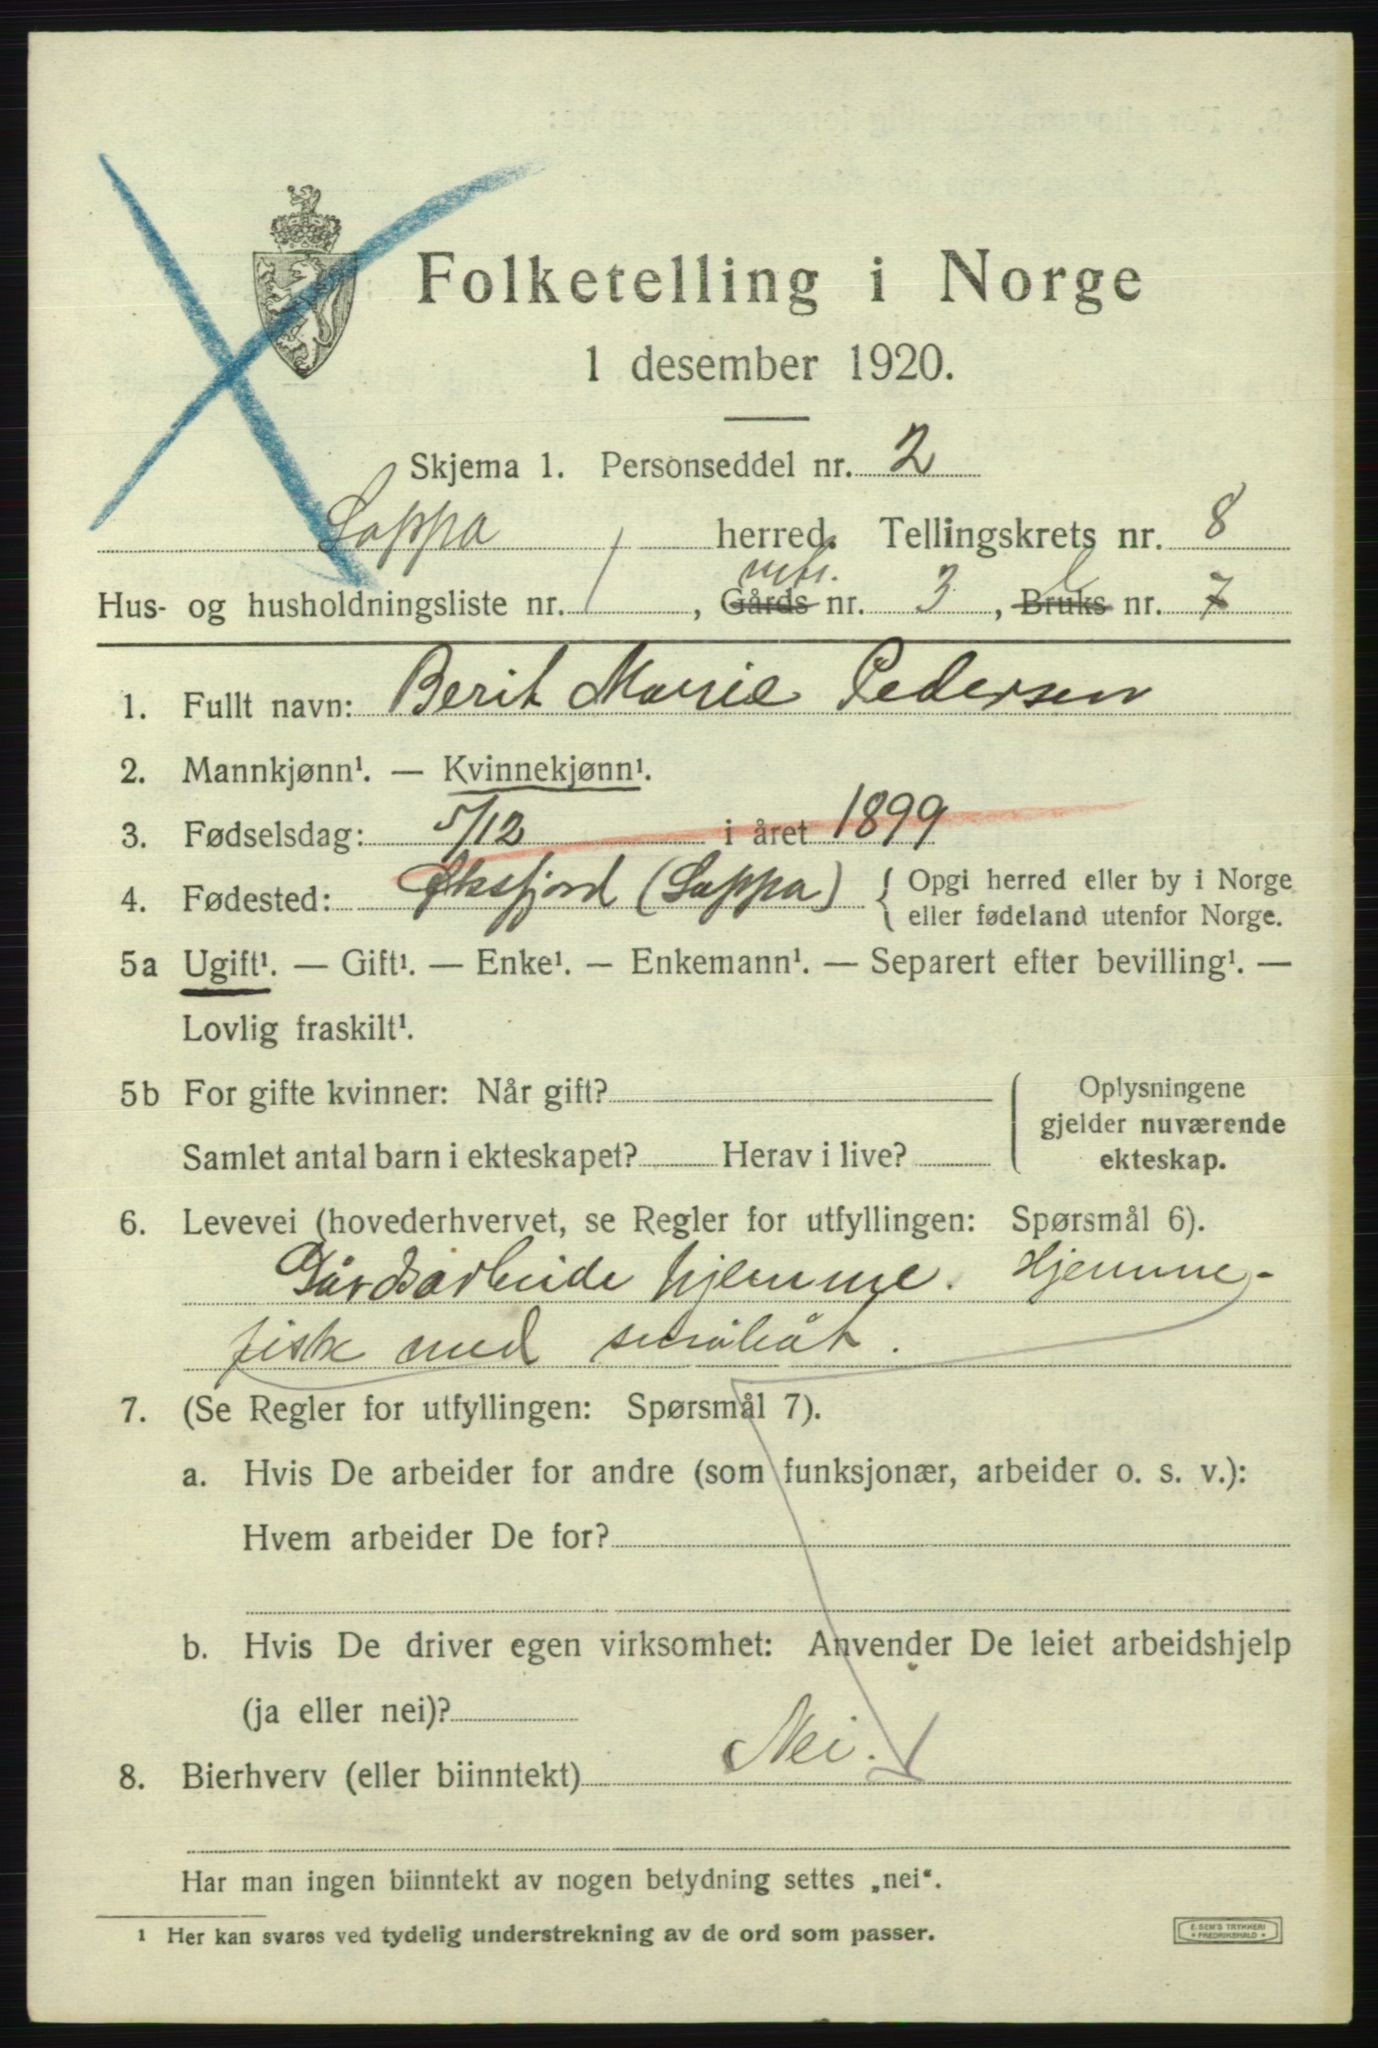 Folketelling i Norge
1 desember 1920.
Skjema 1. Personseddel nr. 2
Loppa herred. Tellingskrets nr. 8
mtr.
Hus- og husholdningsliste nr. 1, Gårds nr. 3, Bruks nr. 7
1. Fullt navn: Berit Marie Pedersen
2. Mannkjønn¹. — Kvinnekjønn¹.
3. Fødselsdag: 5/12 i året 1899
4. Fødested: Øksfjord (Loppa) { Opgi herred eller by i Norge
eller fødeland utenfor Norge.
5a Ugift¹. — Gift¹. — Enke¹. — Enkemann¹. — Separert efter bevilling¹. —
Lovlig fraskilt¹.
5b For gifte kvinner: Når gift?
Samlet antal barn i ekteskapet? Herav i live?
Oplysningene
gjelder nuværende
ekteskap.
6. Levevei (hovederhvervet, se Regler for utfyllingen: Spørsmål 6).
Gårdsarbeide hjemme. Hjemme-
fisk med småbåt.
7. (Se Regler for utfyllingen: Spørsmål 7).
a. Hvis De arbeider for andre (som funksjonær, arbeider o. s. v.):
Hvem arbeider De for?
b. Hvis De driver egen virksomhet: Anvender De leiet arbeidshjelp
(ja eller nei)?
8. Bierhverv (eller biinntekt) Nei.
Har man ingen biinntekt av nogen betydning settes „nei“.
¹ Her kan svares ved tydelig understrekning av de ord som passer.
E. SEM'S TRYKKERI
* FREDRIKSHALD *